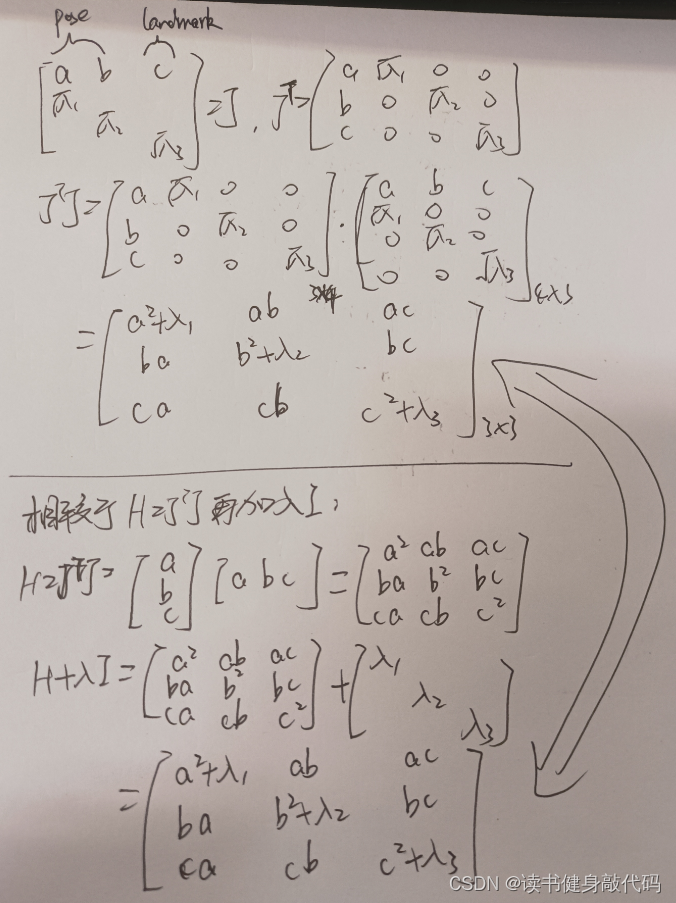 pose landmark
[a b c; √λ₁; √λ₂; √λ₃] = J, Jᵀ = [a √λ₁ 0 0; b 0 √λ₂ 0; c 0 0 √λ₃]
JᵀJ = [a √λ₁ 0 0; b 0 √λ₂ 0; c 0 0 √λ₃]3×4 · [a b c; √λ₁ 0 0; 0 √λ₂ 0; 0 0 √λ₃]4×3
= [a²+λ₁ ab ac; ba b²+λ₂ bc; ca cb c²+λ₃]3×3
相较于 H=JᵀJ 再加λI,
H=JᵀJ= [a; b; c] [a b c] = [a² ab ac; ba b² bc; ca cb c²]
H+λI = [a² ab ac; ba b² bc; ca cb c²] + [λ₁; λ₂; λ₃]
= [a²+λ₁ ab ac; ba b²+λ₂ bc; ca cb c²+λ₃]
CSDN @读书健身敲代码